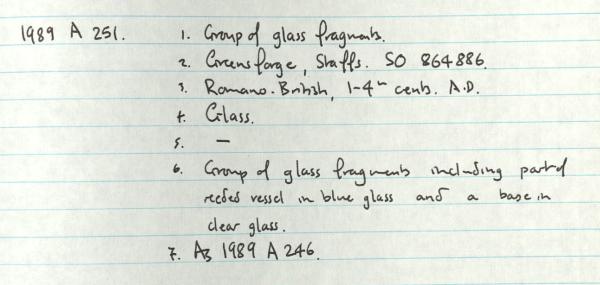 1989 A 251. 1. Group of glass fragments.
2. Greensforge, Staffs. SO 864886.
3. Romano-British, 1-4th cents. A.D.
4. Glass.
5. —
6. Group of glass fragments including part of
reeded vessel in blue glass and a base in
clear glass.
7. As 1989 A 246.